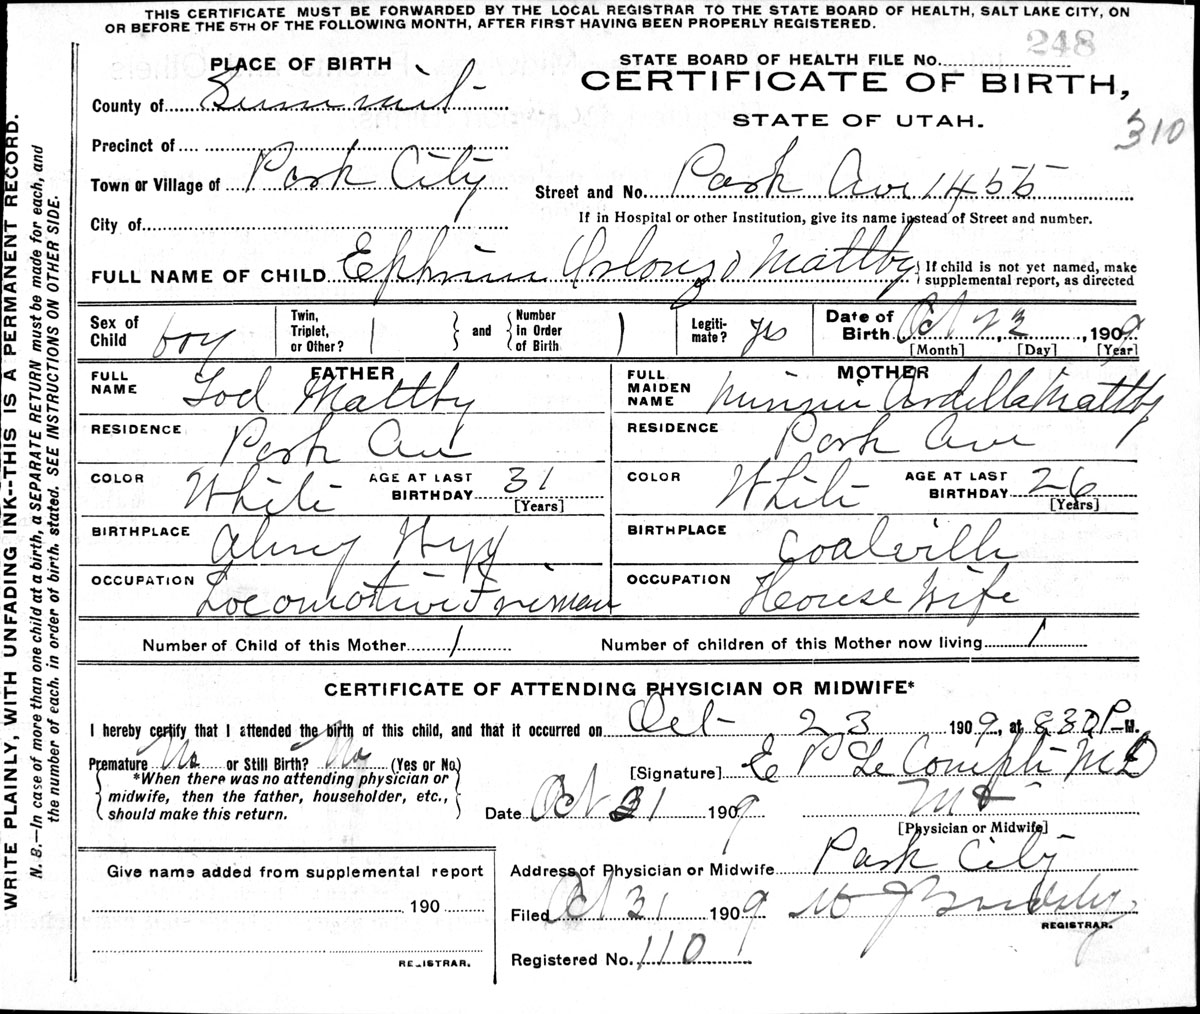 THIS CERTIFICATE MUST BE FORWARDED BY THE LOCAL REGISTRAR TO THE STATE BOARD OF HEALTH, SALT LAKE CITY, ON
OR BEFORE THE 5TH OF THE FOLLOWING MONTH, AFTER FIRST HAVING BEEN PROPERLY REGISTERED.
248
PLACE OF BIRTH
STATE BOARD OF HEALTH FILE No.
County of Summit
CERTIFICATE OF BIRTH,
STATE OF UTAH.
310
Precinct of
Town or Village of Park City
Street and No. Park Ave 1455
City of
If in Hospital or other Institution, give its name instead of Street and number.
FULL NAME OF CHILD Ephrim Orlonzo Maltby
If child is not yet named, make
supplemental report, as directed
Sex of Child boy
Twin, Triplet, or Other? 1
and
Number in Order of Birth 1
Legiti- mate? yes
Date of Birth Oct 23, 1909
[Month] [Day] [Year]
FATHER
MOTHER
FULL NAME Tod Maltby
FULL MAIDEN NAME Ardella Maltby
RESIDENCE Park Ave
RESIDENCE Park Ave
COLOR White AGE AT LAST BIRTHDAY 31 [Years]
COLOR White AGE AT LAST BIRTHDAY 26 [Years]
BIRTHPLACE
BIRTHPLACE Coalville
OCCUPATION Locomotive Fireman
OCCUPATION House Wife
Number of Child of this Mother 1
Number of children of this Mother now living 1
CERTIFICATE OF ATTENDING PHYSICIAN OR MIDWIFE*
I hereby certify that I attended the birth of this child, and that it occurred on Oct 23 1909, at 830 P-M.
Premature No or Still Birth? No (Yes or No.)
*When there was no attending physician or
midwife, then the father, householder, etc.,
should make this return.
[Signature] E P Le Compte MD
Date Oct 31 1909
MD
[Physician or Midwife]
Give name added from supplemental report
190
REGISTRAR.
Address of Physician or Midwife Park City
Filed Oct 31 1909
REGISTRAR.
Registered No. 110
WRITE PLAINLY, WITH UNFADING INK--THIS IS A PERMANENT RECORD.
N. B.—In case of more than one child at a birth, a SEPARATE RETURN must be made for each, and
the number of each. in order of birth. stated. SEE INSTRUCTIONS ON OTHER SIDE.